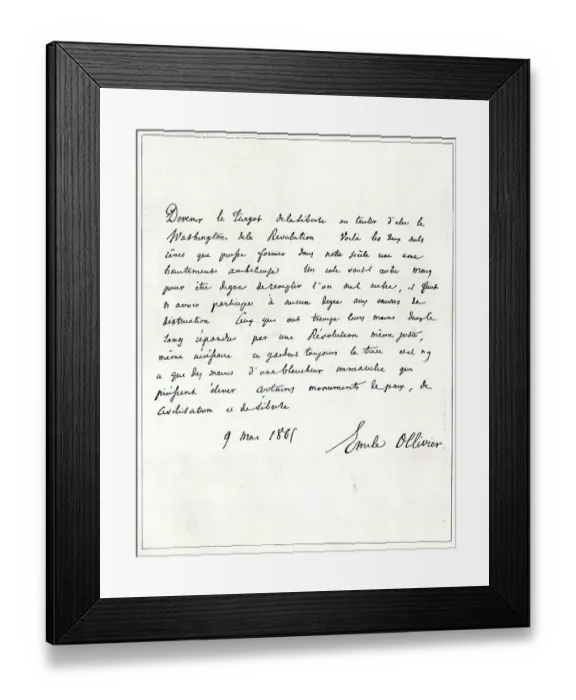 Devenir le Turgot de la Liberté ou tenter d'être le
Washington de la Revolution Voila les deux seuls
rêves que puisse former dans notre siècle une ame
hautement ambitieuse Un role vaut autre mais
pour être digne de remplir l'un ou l'autre, il faut
n avoir participé à aucun degre aux œuvres de
destruction Ceux qui ont trempé leurs mains dans le
sang répandu par une Révolution même juste,
même nécessaire en gardent toujours la trace et il n y
a que des mains d'une blancheur immaculée qui
puissent élever certains monuments de paix, de
civilisation et de liberté
9 mai 1865
Emile Ollivier.